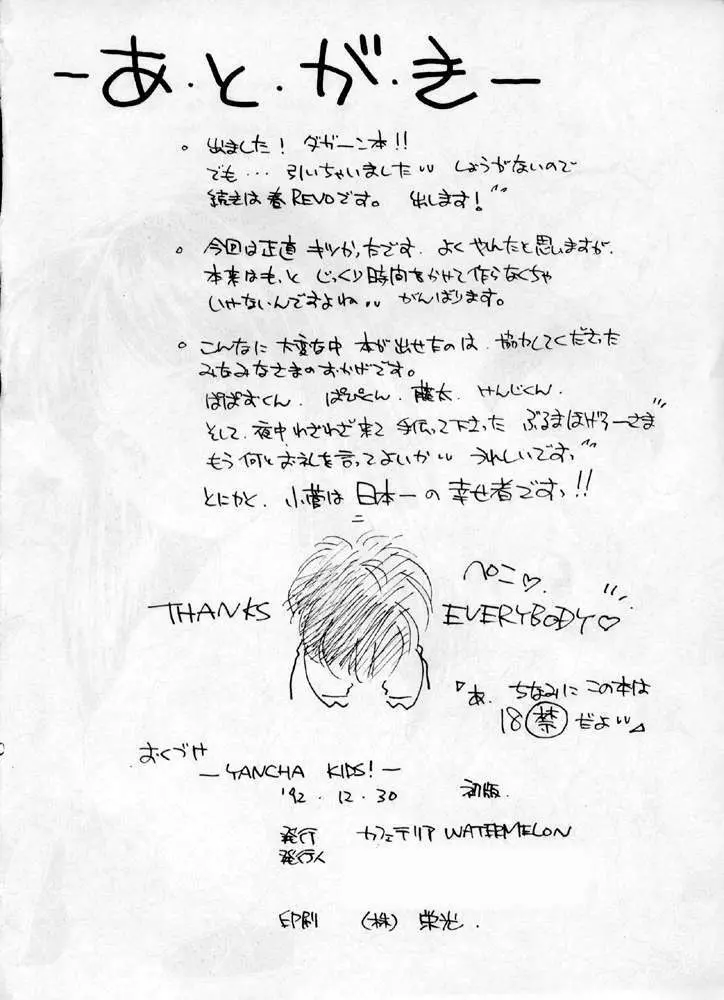 -あ・と・が・き-
・出ました! ダガーン本!!
でも… 引いちゃいました しょうがないので
続きは春REVOです。 出します!
・今回は正直 キツかったです。よくやんたと思いますが、
本来はもっと じっくり時間をかせて作らなくちゃ
いけないんですよね がんばります。
・こんなに 大変な中 本が出せたのは、協力してくださった
みなみなさまのおかげです。
ぱぱすくん、ぱぴくん、藤太、けんじくん、
そして、夜中わざわざ来て 手伝って下さった ぶるまほげろーさま
もう何とお礼を言ってよいか うれしいですっ
とにかく、小菅は 日本一の 幸せ者ですっ!!
ペこ♡
THANKS EVERYBODY♡
『あ、ちなみに この本は
18禁だよ』
おくづけ
-YANCHA KIDS!-
'92.12.30 初版
発行 カフェテリア WATERMELON
発行人
印刷 (株) 栄光.